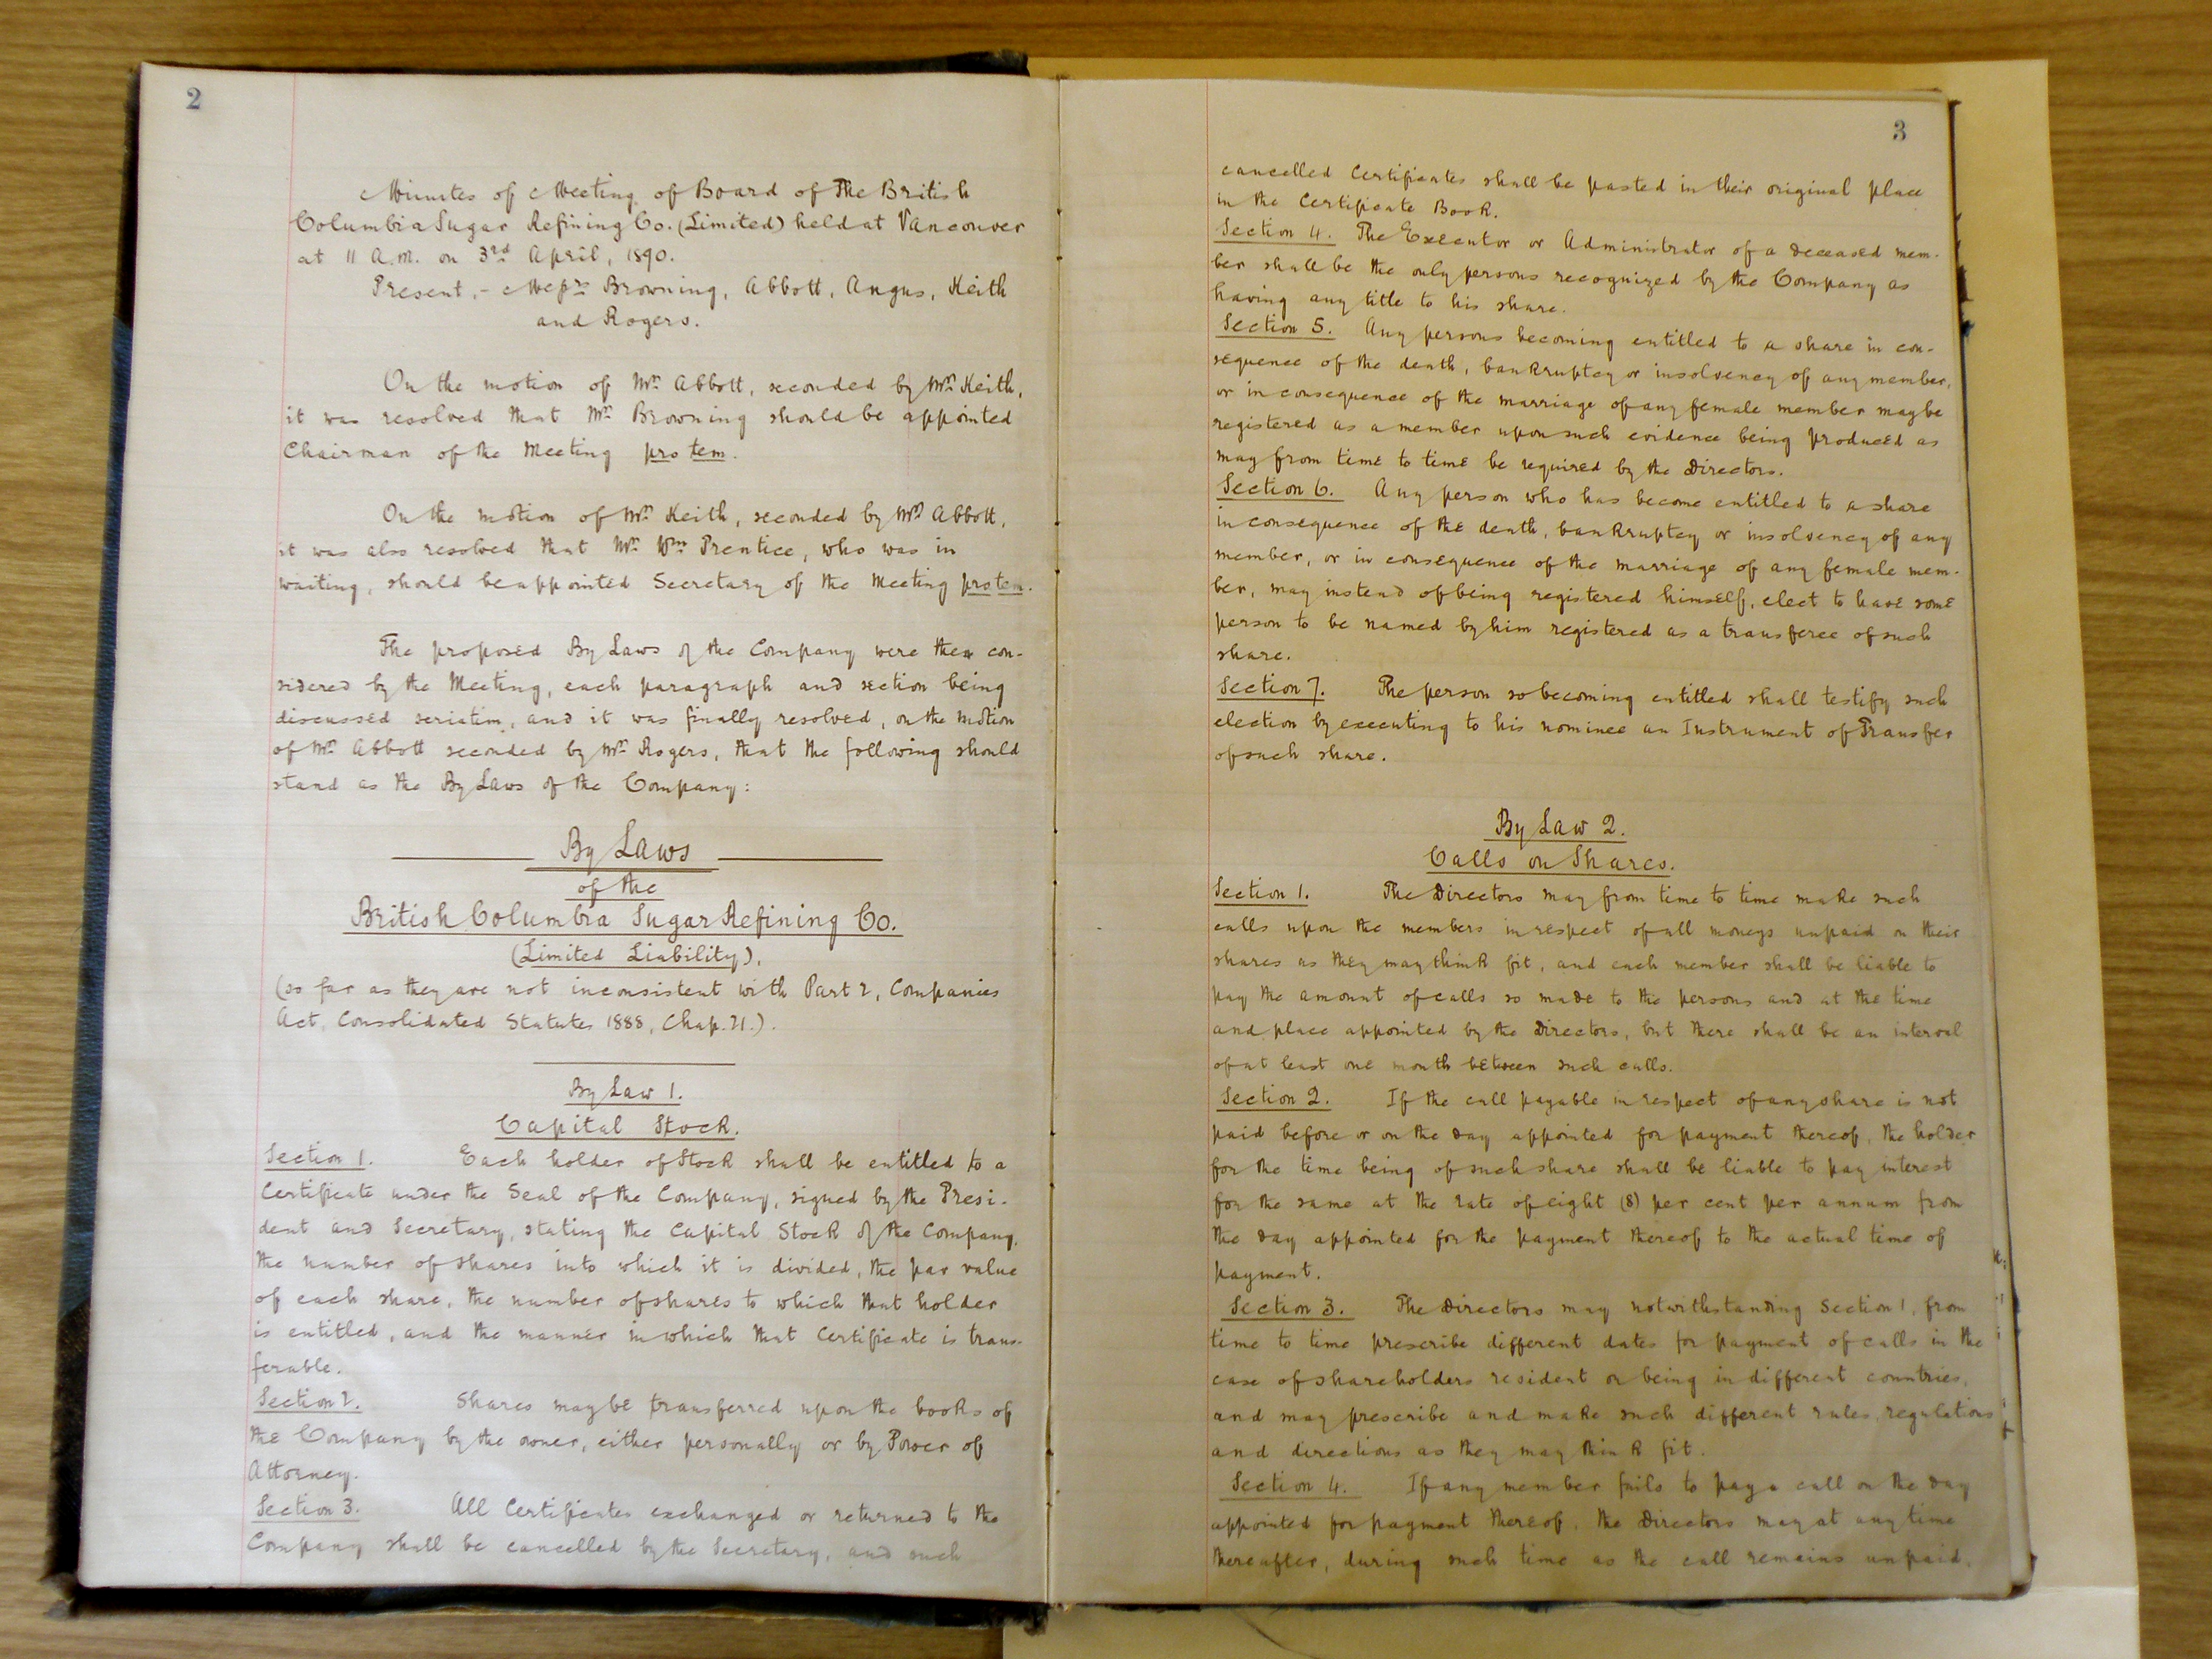 2
Minutes of Meeting of Board of The British
Columbia Sugar Refining Co. (Limited) held at Vancouver
at 11 A.M. on 3rd April, 1890.
Present,- Messrs Browning, Abbott, Angus, Keith
and Rogers.
On the motion of Mr. Abbott, seconded by Mr. Keith,
it was resolved that Mr. Browning should be appointed
Chairman of the Meeting pro tem.
On the motion of Mr. Keith, seconded by Mr. Abbott,
it was also resolved that Mr. Wm. Prentice, who was in
waiting, should be appointed Secretary of the Meeting pro tem.
The proposed By Laws of the Company were then con-
sidered by the Meeting, each paragraph and section being
discussed seriatim, and it was finally resolved, on the motion
of Mr. Abbott seconded by Mr. Rogers, that the following should
stand as the By Laws of the Company:
By Laws
of the
British Columbia Sugar Refining Co.
(Limited Liability).
(so far as they are not inconsistent with Part 2, Companies
Act, Consolidated Statutes 1888, Chap. 21.).
By Law 1.
Capital Stock.
Section 1. Each holder of Stock shall be entitled to a
Certificate under the Seal of the Company, signed by the Presi-
dent and Secretary, stating the Capital Stock of the Company,
the number of shares into which it is divided, the par value
of each share, the number of shares to which that holder
is entitled, and the manner in which that Certificate is trans-
ferable.
Section 2. Shares may be transferred upon the books of
the Company by the owner, either personally or by Power of
Attorney.
Section 3. All Certificates exchanged or returned to the
Company shall be cancelled by the Secretary, and such
3
cancelled Certificates shall be pasted in their original place
in the Certificate Book.
Section 4. The Executor or Administrator of a deceased mem-
ber shall be the only persons recognized by the Company as
having any title to his share.
Section 5. Any persons becoming entitled to a share in con-
sequence of the death, bankruptcy or insolvency of any member,
or in consequence of the marriage of any female member may be
registered as a member upon such evidence being produced as
may from time to time be required by the Directors.
Section 6. Any person who has become entitled to a share
in consequence of the death, bankruptcy or insolvency of any
member, or in consequence of the marriage of any female mem-
ber, may instead of being registered himself, elect to have some
person to be named by him registered as a transferee of such
share.
Section 7. The person so becoming entitled shall testify such
election by executing to his nominee an Instrument of Transfer
of such share.
By Law 2.
Calls on Shares.
Section 1. The Directors may from time to time make such
calls upon the members in respect of all moneys unpaid on their
shares as they may think fit, and each member shall be liable to
pay the amount of calls so made to the persons and at the time
and place appointed by the Directors, but there shall be an interval
of at least one month between such calls.
Section 2. If the call payable in respect of any share is not
paid before or on the day appointed for payment thereof, the holder
for the time being of such share shall be liable to pay interest
for the same at the rate of eight (8) per cent per annum from
the day appointed for the payment thereof to the actual time of
payment.
Section 3. The Directors may notwithstanding Section 1, from
time to time prescribe different dates for payment of calls in the
case of shareholders resident or being in different countries,
and may prescribe and make such different rules, regulations
and directions as they may think fit.
Section 4. If any member fails to pay a call on the day
appointed for payment thereof, the Directors may at any time
thereafter, during such time as the call remains unpaid,